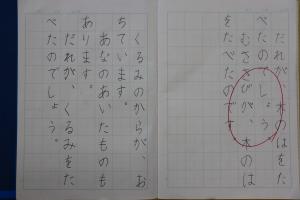 だれが　木のはをた
べたのでしょう。
むささびが、木のは
をたべたのです。
くるみのからが、お
ちています。
あなのあいたものも
あります。
だれが、くるみをた
べたのでしょう。